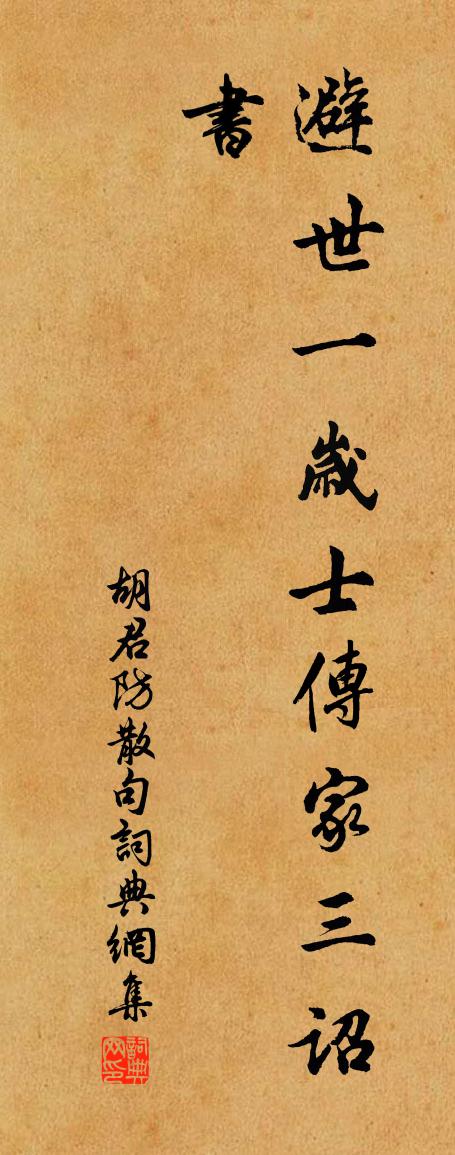 避世一歲士傳家三詔
書
胡君防散句詞典網集
詞典網印